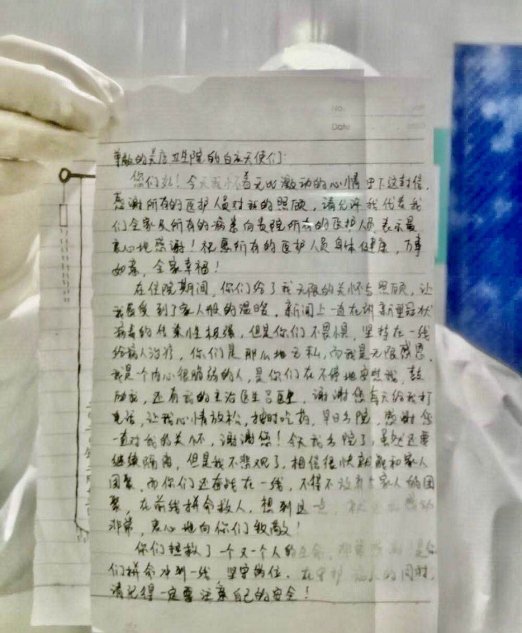 No.
Date
尊敬的关庄卫生院的白衣天使们:
您们好!今天我怀着无比激动的心情写下这封信,
感谢所有的医护人员对我的照顾,请允许我代表我
们全家及所有的病患向贵院所有的医护人员表示最
衷心地感谢!祝愿所有的医护人员身体健康,万事
如意,全家幸福!
在住院期间,你们给了我无限的关怀与照顾,让
我感受到了家人般的温暖,新闻上一直在讲新型冠状
病毒的传染性极强,但是你们不畏惧,坚持在一线
给病人治疗,你们是那么地无私,而我是无限感恩,
我是个内心很脆弱的人,是你们在不停地安慰我,鼓
励我,还有我的主治医生吕医生,谢谢您每天给我打
电话,让我心情放松,按时吃药,早日出院,感谢您
一直对我的关怀,谢谢您!今天我出院了,虽然还要
继续隔离,但是我不悲观了,相信很快就能和家人
团聚,而你们还奋战在一线,不得不放弃与家人的团
聚,在前线拼命救人,想到这一点,感动
非常,衷心地向你们致敬!
你们拯救了一个又一个人的生命,
们拼命冲到一线,坚守岗位,在守护病人的同时,
请记得一定要注意自己的安全!